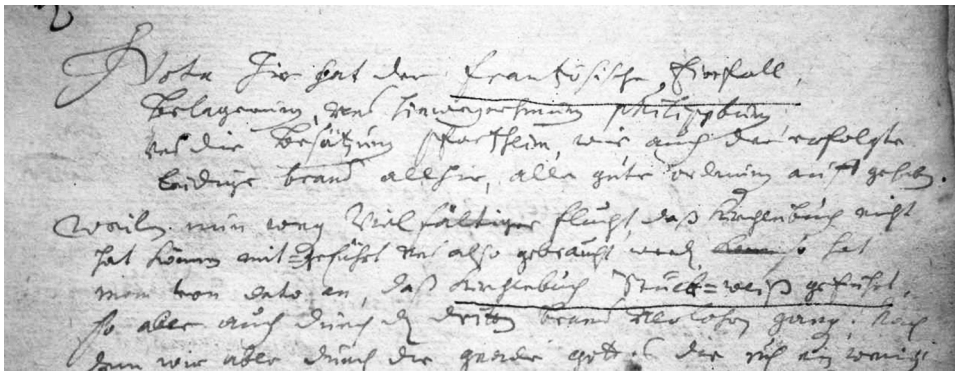 Nota Hier hat der Frantzösische Einfall,
Belagerung, und hinwegnehmung Philippburg
und die Besätzung Pfortzheim, wie auch der erfolgte
leidige brand allhie, alle gute ordnung auffgehebt.
Weiln nun weg Vielfältiger flucht, daß Kirchebuch nicht
hat können mit=geführt und also gebraucht werd, so hat
man von dato an, daß Kirchebuch Stück=weiß geführt,
so aber auch durch d dritten brand verlohren gang; Nach
dem wir aber durch die gnade gottes die sich ein wenig